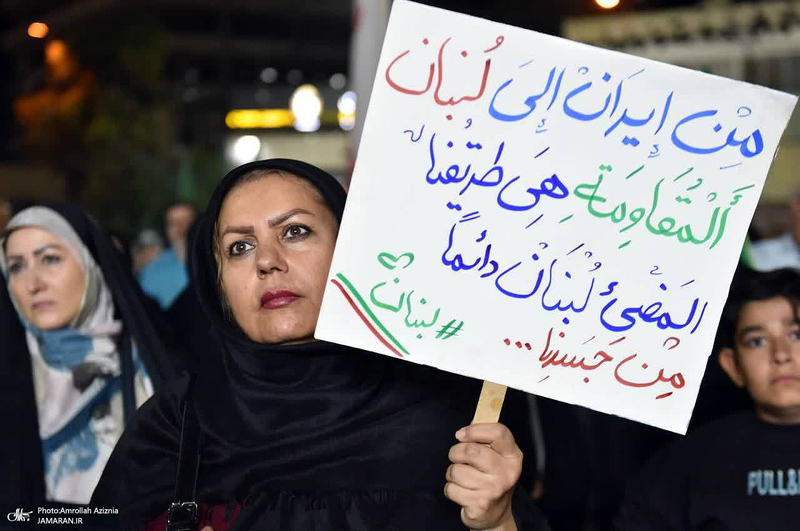 مِنْ إيرَانْ إلىَ لُبنان
أَلْمُقَاوِمَةِ هِيَ طَرِيقُنا
المَضْئُ لُبْنَانْ دائماً
مِن ...
به
#لبنان
PULL&
Photo:Amrollah Aziznia
JAMARAN.IR